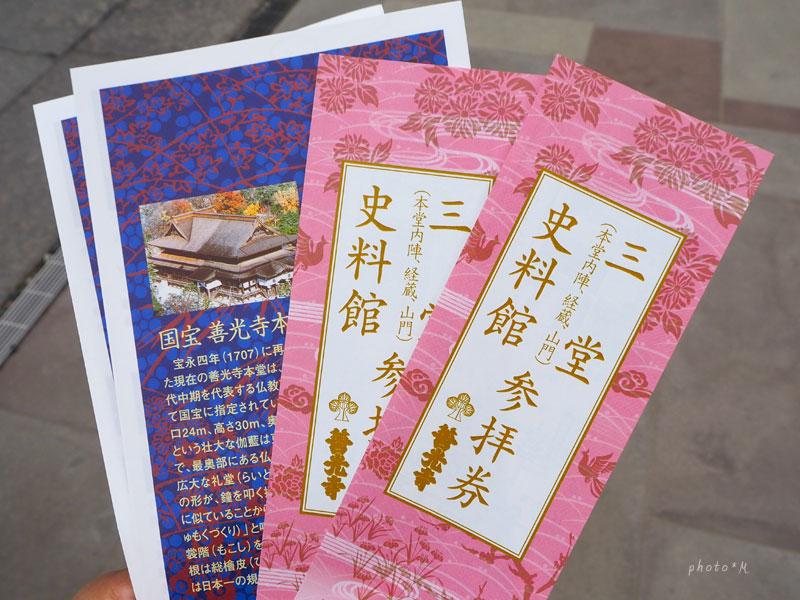 国宝 善光寺本
宝永四年(1707)に再
た現在の善光寺本堂は
代中期を代表する仏教
て国宝に指定されてい
口24m、高さ30m、奥
という壮大な伽藍は
で、最奥部にある仏
広大な礼堂(らいと
の形が、鐘を叩く
に似ていることから
ゅもくづくり)」と
裳階(もこし)を
根は総檜皮(
は日本一の規
三堂
(本堂内陣、経蔵、山門)
史料館
参拝
善光寺
三堂
(本堂内陣、経蔵、山門)
史料館
参拝券
善光寺
photo*M